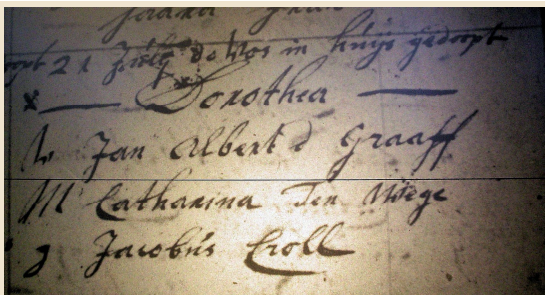 21 do Vos in huijs gedoopt
x — Dorothea —
V Jan Albert d Graaff
M Catharina Ten Woege
g Jacobus Croll